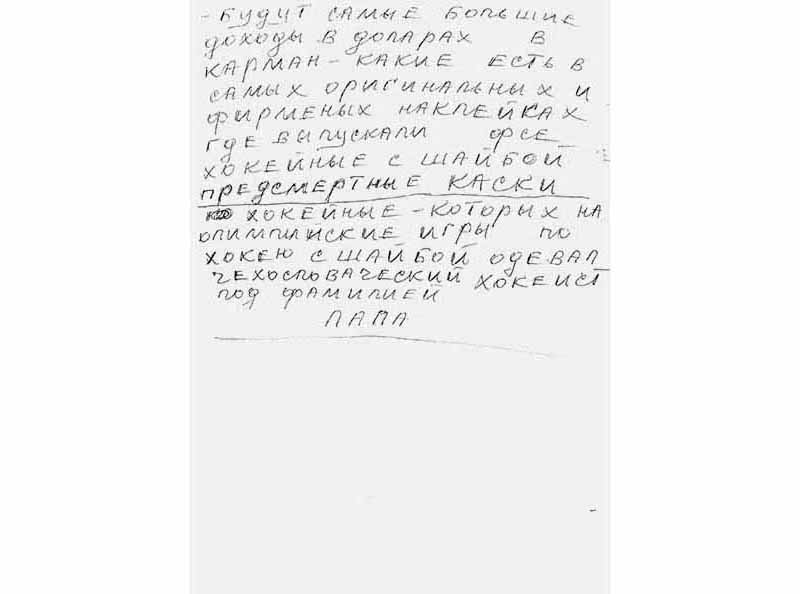 - БУДУТ САМЫЕ БОЛЬШИЕ
ДОХОДЫ В ДОЛАРАХ В
КАРМАН - КАКИЕ ЕСТЬ В
САМЫХ ОРИГИНАЛЬНЫХ И
ФИРМЕНЫХ НАКЛЕЙКАХ
ГДЕ ВЫПУСКАЛИ ФСЕ
ХОКЕЙНЫЕ С ШАЙБОЙ
ПРЕДСМЕРТНЫЕ КАСКИ
ХОКЕЙНЫЕ - КОТОРЫХ НА
ОЛИМПИЙСКИЕ ИГРЫ ПО
ХОКЕЮ С ШАЙБОЙ ОДЕВАЛ
ЧЕХОСЛОВАЧЕСКИЙ ХОКЕИСТ
ПОД ФАМИЛИЕЙ
ЛАЛА